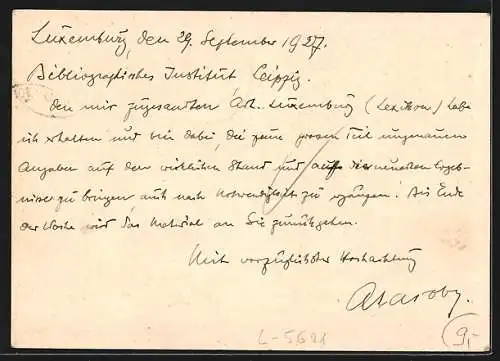 Luxemburg, den 29. September 1927.
Bibliographisches Institut Leipzig.
Den mir zugesandten Art. Luxemburg (Lexikon) habe
ich erhalten und bin dabei, die zum grossen Teil ungenauen
Angaben auf den wirklichen Stand und auf die neuesten Ergeb-
nisse zu bringen auch nach Notwendigkeit zu ergänzen. Bis Ende
der Woche wird das Material an Sie zurückgehen.
Mit vorzüglicher Hochachtung
L-5621
9,-